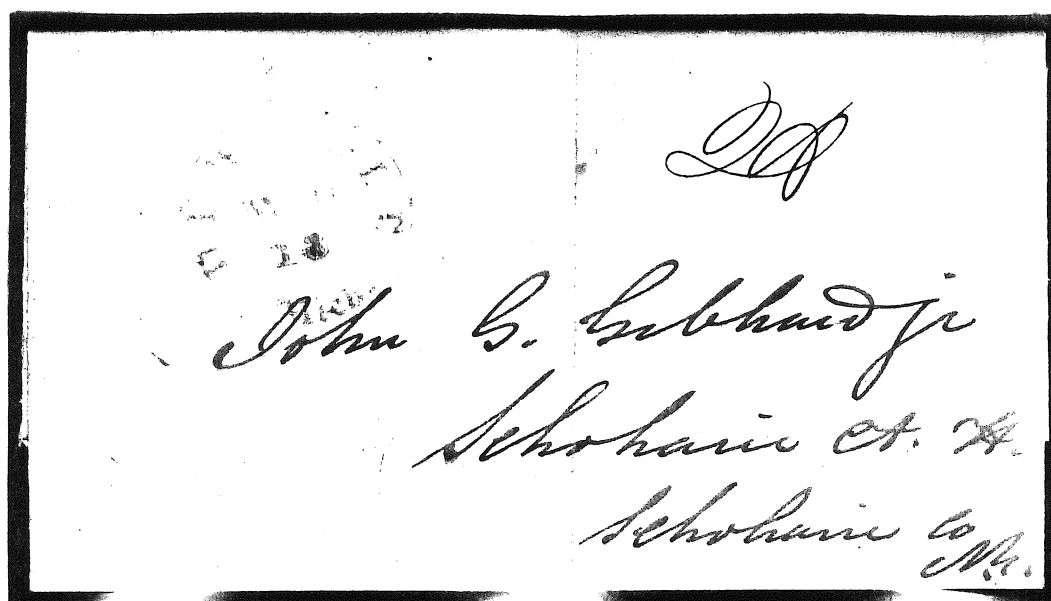 18
Mich.
John G. Gebhard jr
Schoharie Ct. H.
Schoharie Co
N.Y.